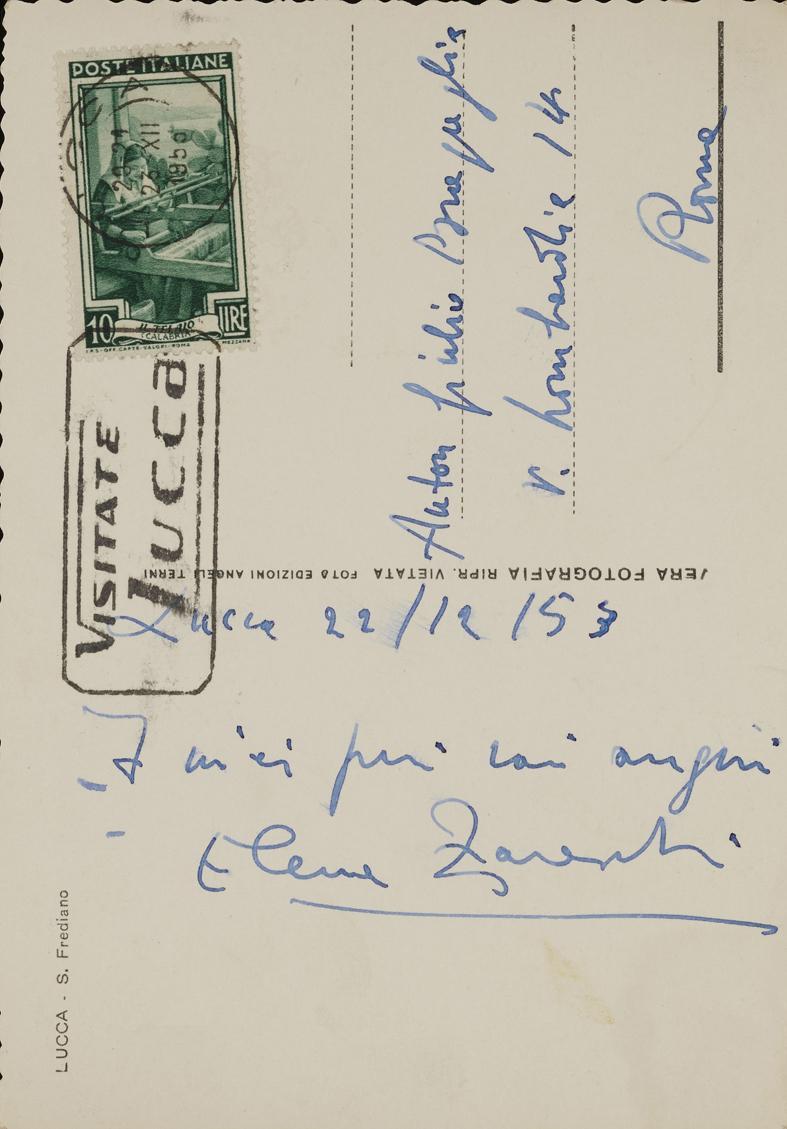 POSTE ITALIANE
10 LIRE
IL TELAIO
(CALABRIA)
I.P.S-OFF.CARTE-VALORI-ROMA
MEZZANA
LUCCA
23 XII
VISITATE
Lucca
Anton Giulio Bragaglia
V. Lombardia 14
Roma
VERA FOTOGRAFIA RIPR. VIETATA FOTO EDIZIONI ANGELI TERNI
Lucca 22/12/53
I miei più cari auguri
Elena Zareschi
LUCCA - S. Frediano